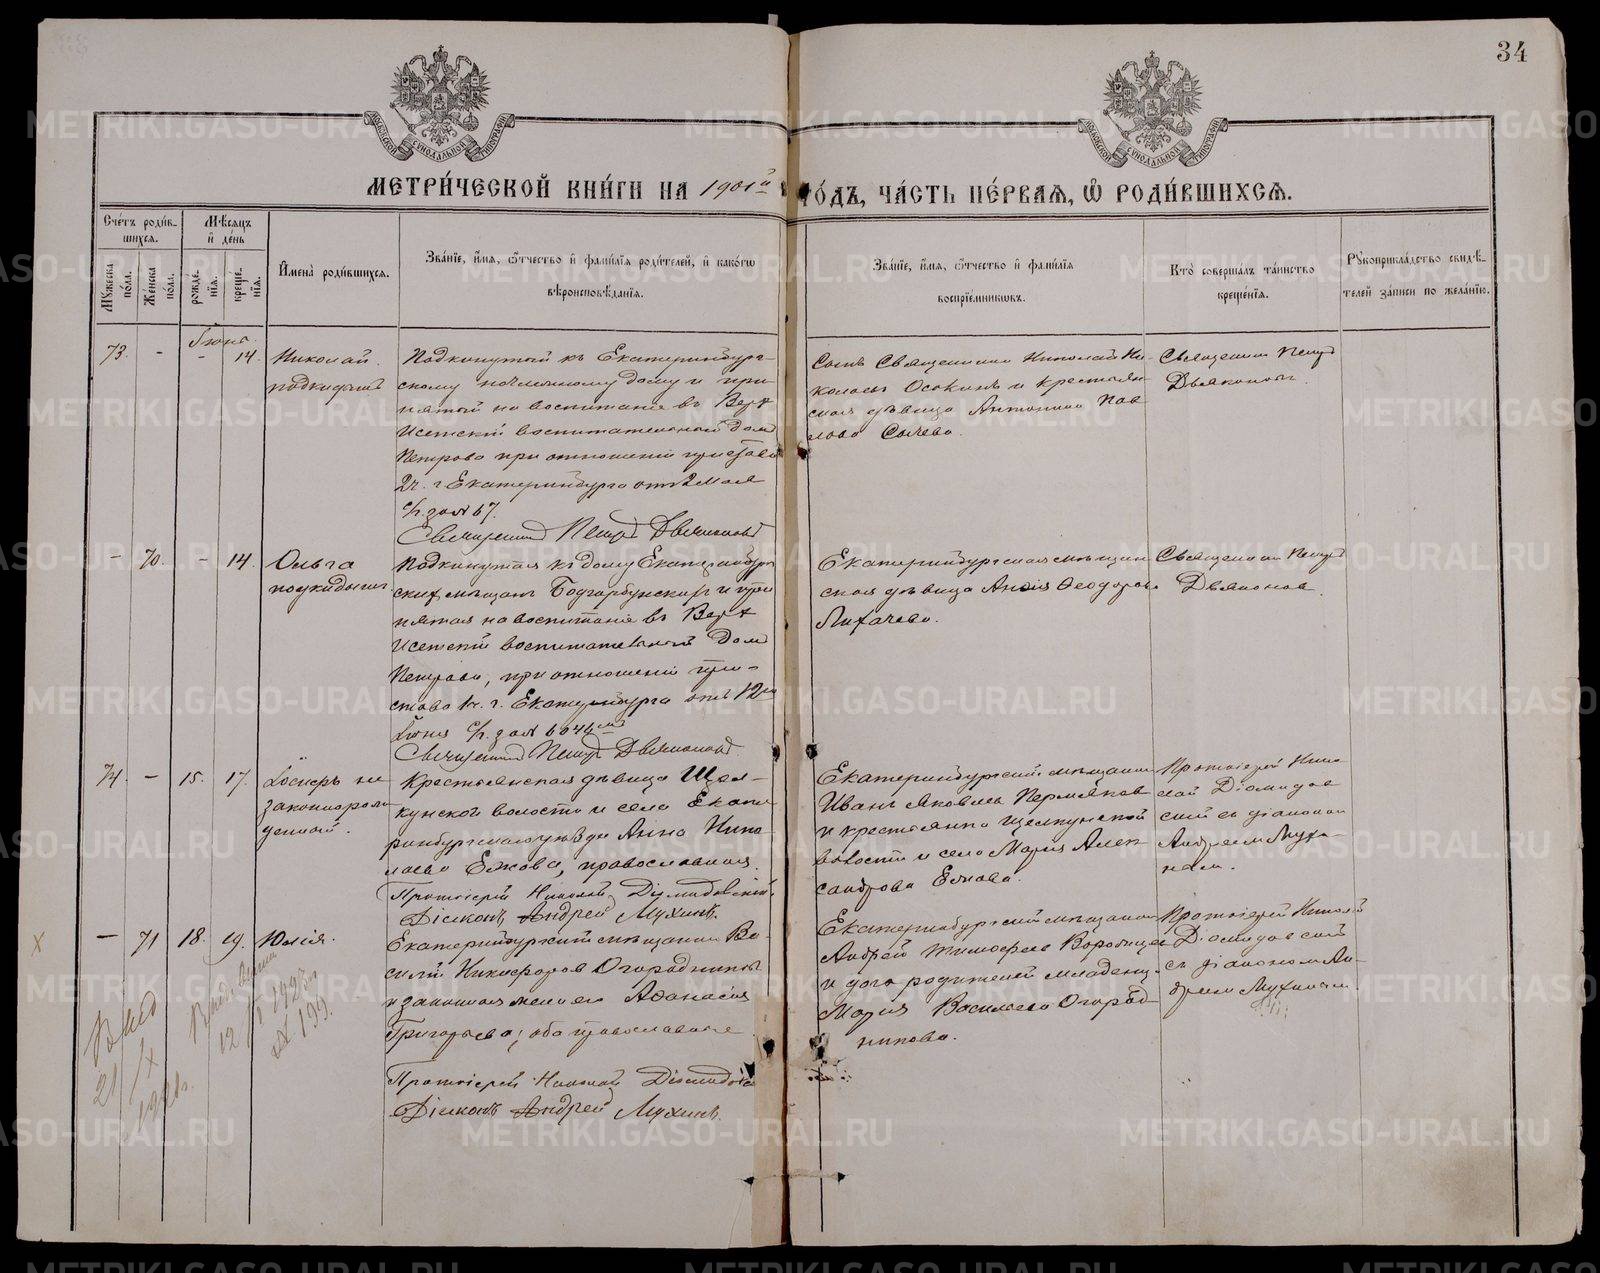 34
МОСКОВСКОЙ СѴНОДАЛЬНОЙ ТИПОГРАФІИ
МОСКОВСКОЙ СѴНОДАЛЬНОЙ ТИПОГРАФІИ
МЕТРИ́ЧЕСКОЙ КНИ́ГИ НА 1901й ГО́ДЪ, ЧА́СТЬ ПЕ́РВАЯ, Ѡ РОДИ́ВШИХСЯ.
Сче́тъ роди́в-
шихся.
Мѣсяцъ
и де́нь
Му́жеска пола.
Же́нска пола.
рожде́нія.
креще́нія.
И҆мена̀ роди́вшихся.
Зва́ніе, и҆́мя, ѻ҆́тчество и҆ фами́лїя роди́телей, и҆ како́гѡ
вѣроисповѣ́данїя.
Зва́нїе, и҆́мя, ѻ҆́тчество и҆ фами́лїя
воспрїе́мниковъ.
Кто̀ соверша́лъ та́инство
креще́нїя.
Рꙋкоприкла́дство свидѣ́-
телей за́писи по жела́нїю.
Іюнь
73. - - 14.
Николай
подкидышъ
Подкинутый къ Екатеринбург-
скому ночлежному дому и при-
нятый на воспитаніе въ Верх
Исетскій воспитательный домъ
Петрова при отношеніи пристава
2ч. г. Екатеринбурга отъ 2 мая
с/г. за № 67.
Священникъ Петръ Дьяконовъ
Сынъ Священника Николай Ни-
колаевъ Осокинъ и крестьян-
ская дѣвица Антонина Пав-
лова Сычева.
Священникъ Петръ
Дьяконовъ.
- 70. - 14.
Ольга
подкидышъ
Подкинутая къ дому Екатеринбург
скихъ мѣщанъ и при
нятая на воспитаніе въ Верх
Исетскій воспитательный домъ
Петрова, при отношеніи при-
става 1ч. г. Екатеринбурга отъ 12го
Іюня с/г. за №
Священникъ Петръ Дьяконовъ.
Екатеринбургская мѣщан
ская дѣвица Анна Ѳеодорова
Лихачева.
Священникъ Петръ
Дьяконовъ.
74. - 15. 17.
Іосифъ не
законнорож
денный.
Крестьянская дѣвица Щел-
кунской волости и села Екате
ринбургскаго уѣзда Анна Нико
лаева Ежова, православная.
Протоіерей Николай Діомидовскій.
Діаконъ Андрей Мухинъ.
Екатеринбургскій мѣщанинъ
Иванъ Яковлевъ Пермяковъ
и крестьянка Щелкунской
волости и села Марія Алек-
сандрова Ежова.
Протоіерей Нико
лай Діомидов
скій съ діакономъ
Андреемъ Мухи-
нымъ.
- 71 18. 19.
Юлія.
Екатеринбургскій мѣщанинъ Ва-
силій Никифоровъ Огородниковъ
и законная жена его Аѳанасія
Григорьева; оба православные
Протоіерей Николай Діомидовскій
Діаконъ Андрей Мухинъ.
Екатеринбургскій мѣщанинъ
Андрей Тимофеевъ
и дочь родителей младенца
Марія Васильева Огород-
никова.
Протоіерей Николай
Діомидовскій
съ діакономъ Ан-
дреемъ Мухинымъ.